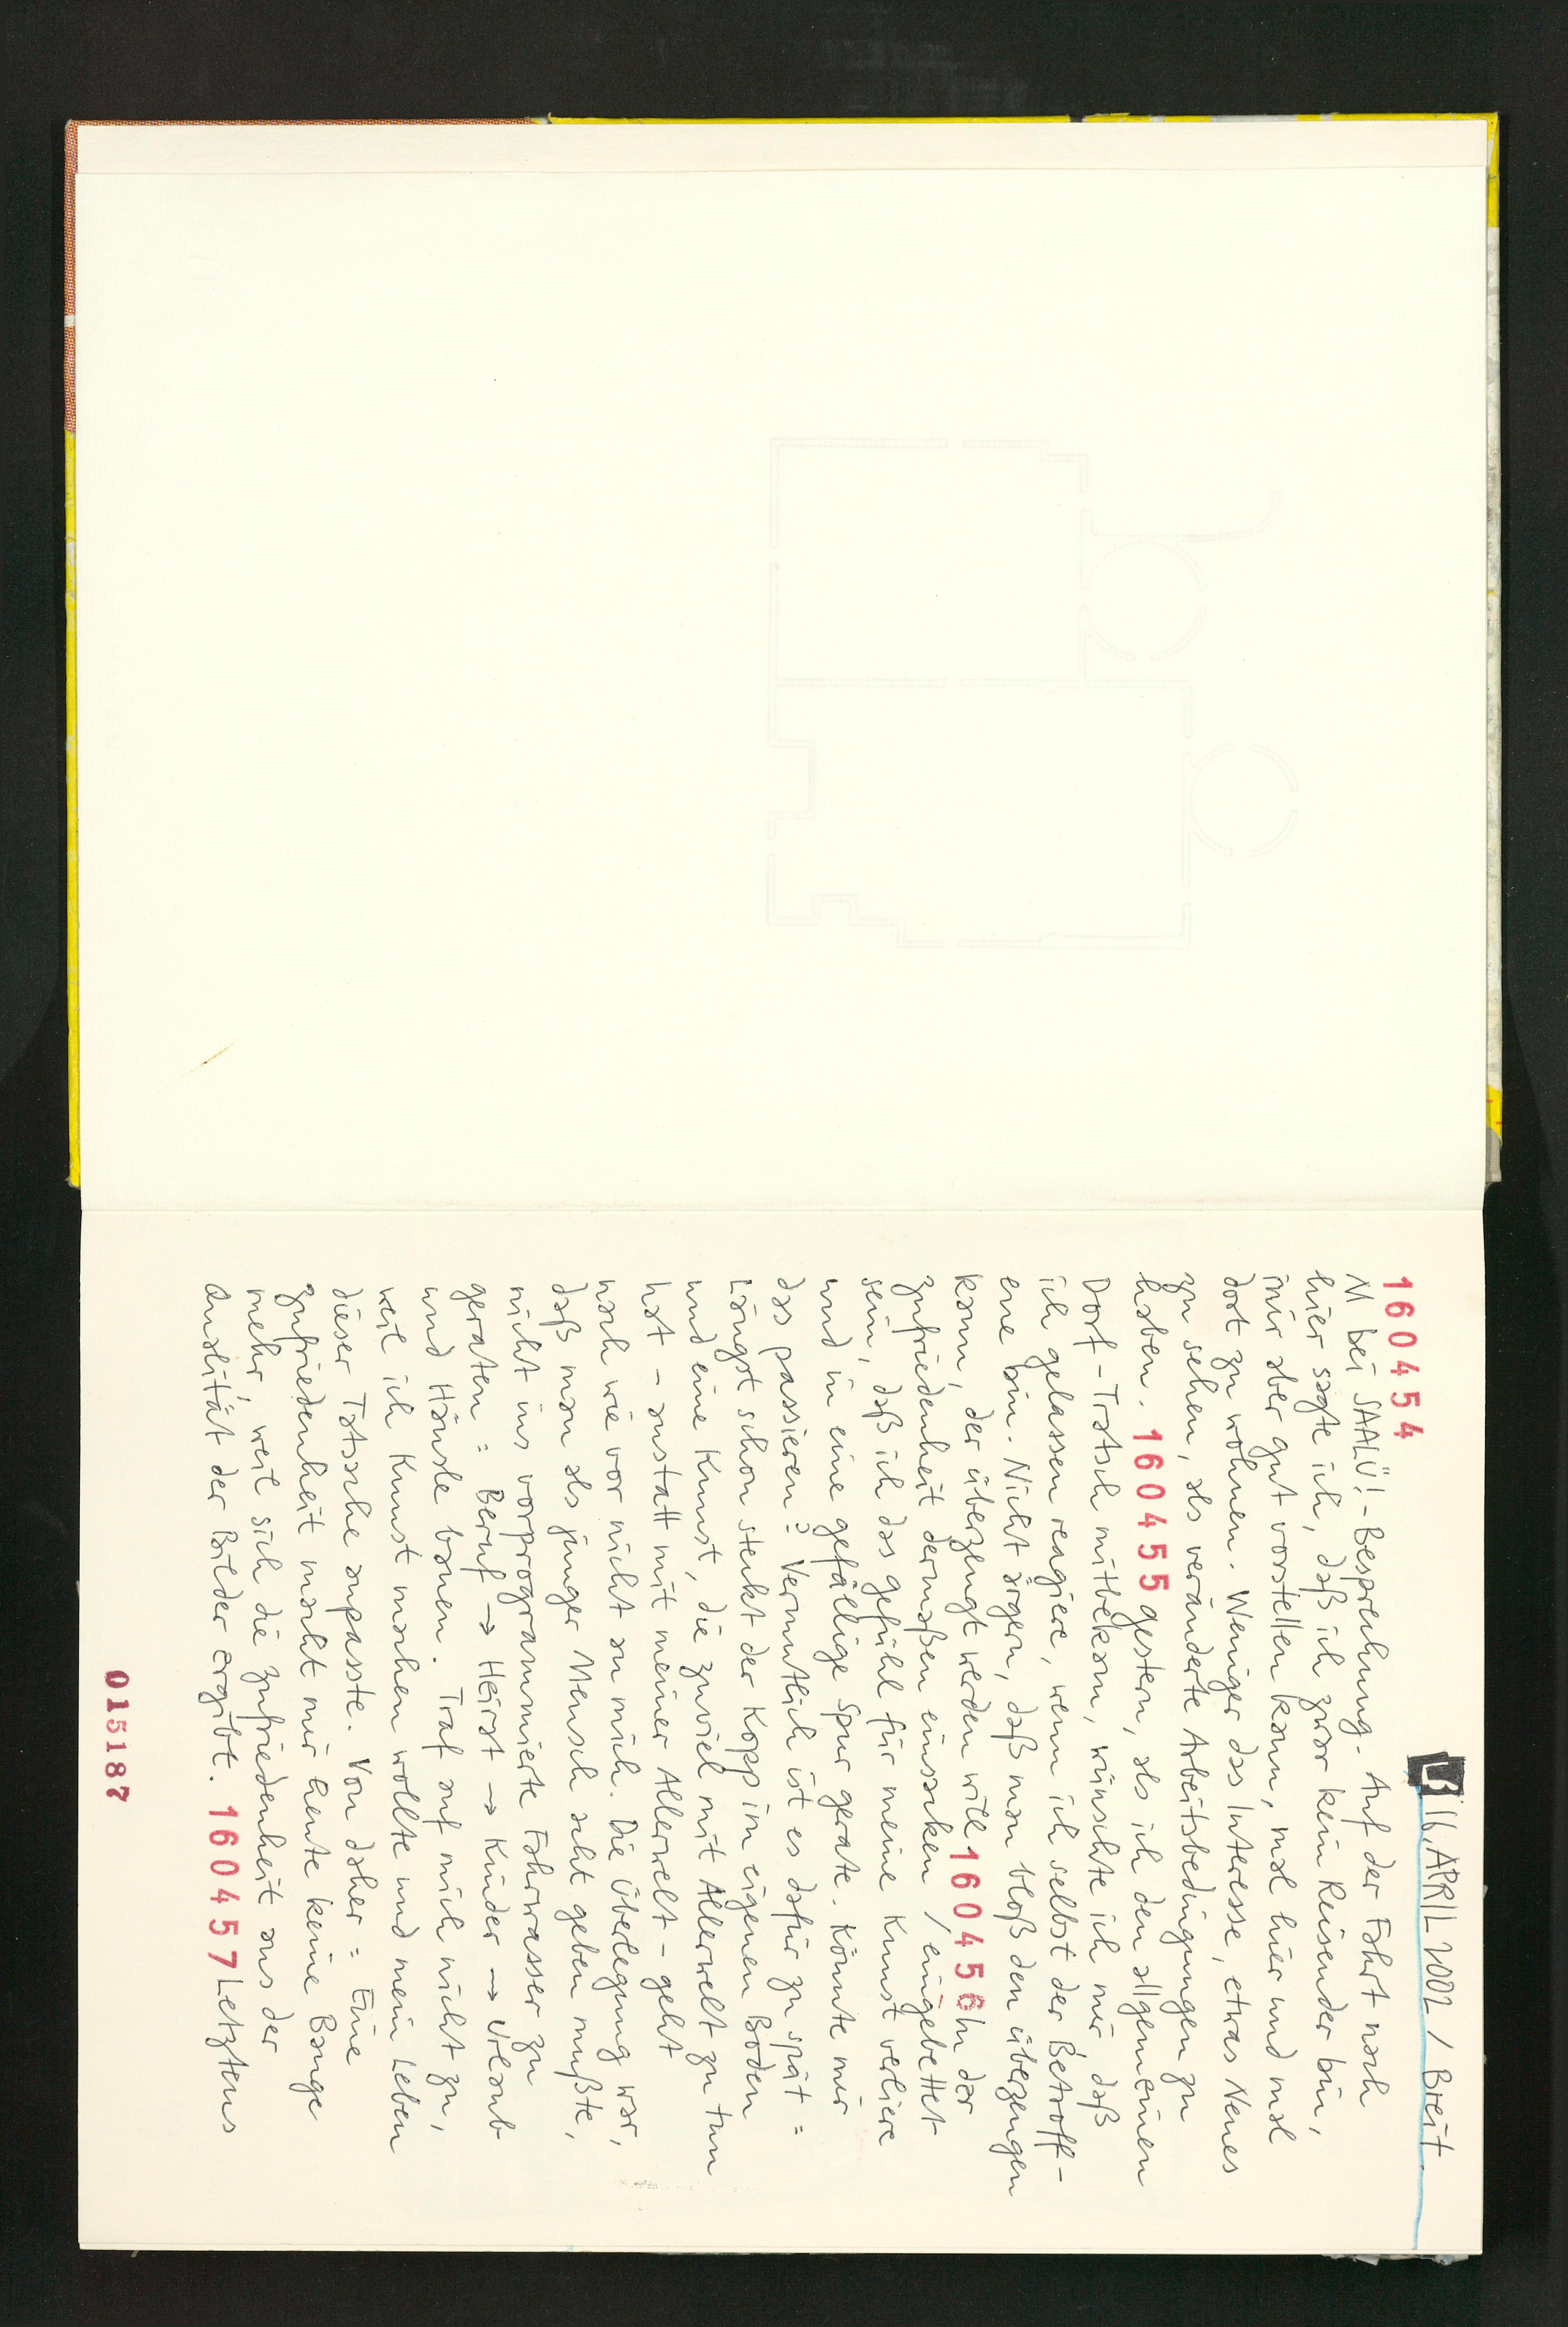 16. APRIL 2002 / Breit.
160454
M bei SAALÜ! - Besprechung. Auf der Fahrt nach
hier sagte ich, daß ich zwar kein Reisender bin,
mir aber gut vorstellen kann, mal hier und mal
dort zu wohnen. Weniger das Interesse, etwas Neues
zu sehen, als veränderte Arbeitsbedingungen zu
haben. 160455 gestern, als ich den allgemeinen
Dorf-Tratsch mitbekam, wünschte ich mir daß
ich gelassen reagiere, wenn ich selbst der Betroff-
ene bin. Nicht ärgern, daß man bloß den überzeugen
kann, der überzeugt werden will 160456 In der
Zufriedenheit dermaßen einsacken / eingebettet
sein, daß ich das gefühl für meine Kunst verliere
und in eine gefällige Spur gerate. Könnte mir
das passieren? Vermutlich ist es dafür zu spät =
Längst schon steckt der Kopp im eigenen Boden
und eine Kunst, die zuviel mit Allerwelt zu tun
hat - anstatt mit meiner Allerwelt - geht
nach wie vor nicht an mich. Die Überlegung war,
daß man als junger Mensch acht geben mußte,
nicht ins vorprogrammierte Fahrwasser zu
geraten = Beruf → Heirat → Kinder → Urlaub
und Häusle bauen. Traf auf mich nicht zu,
weil ich Kunst machen wollte und mein Leben
dieser Tatsache anpasste. Von daher = Eine
Zufriedenheit macht mir heute keine Bange
mehr, weil sich die Zufriedenheit aus der
Qualität der Bilder ergibt. 160457 Letztens
015187